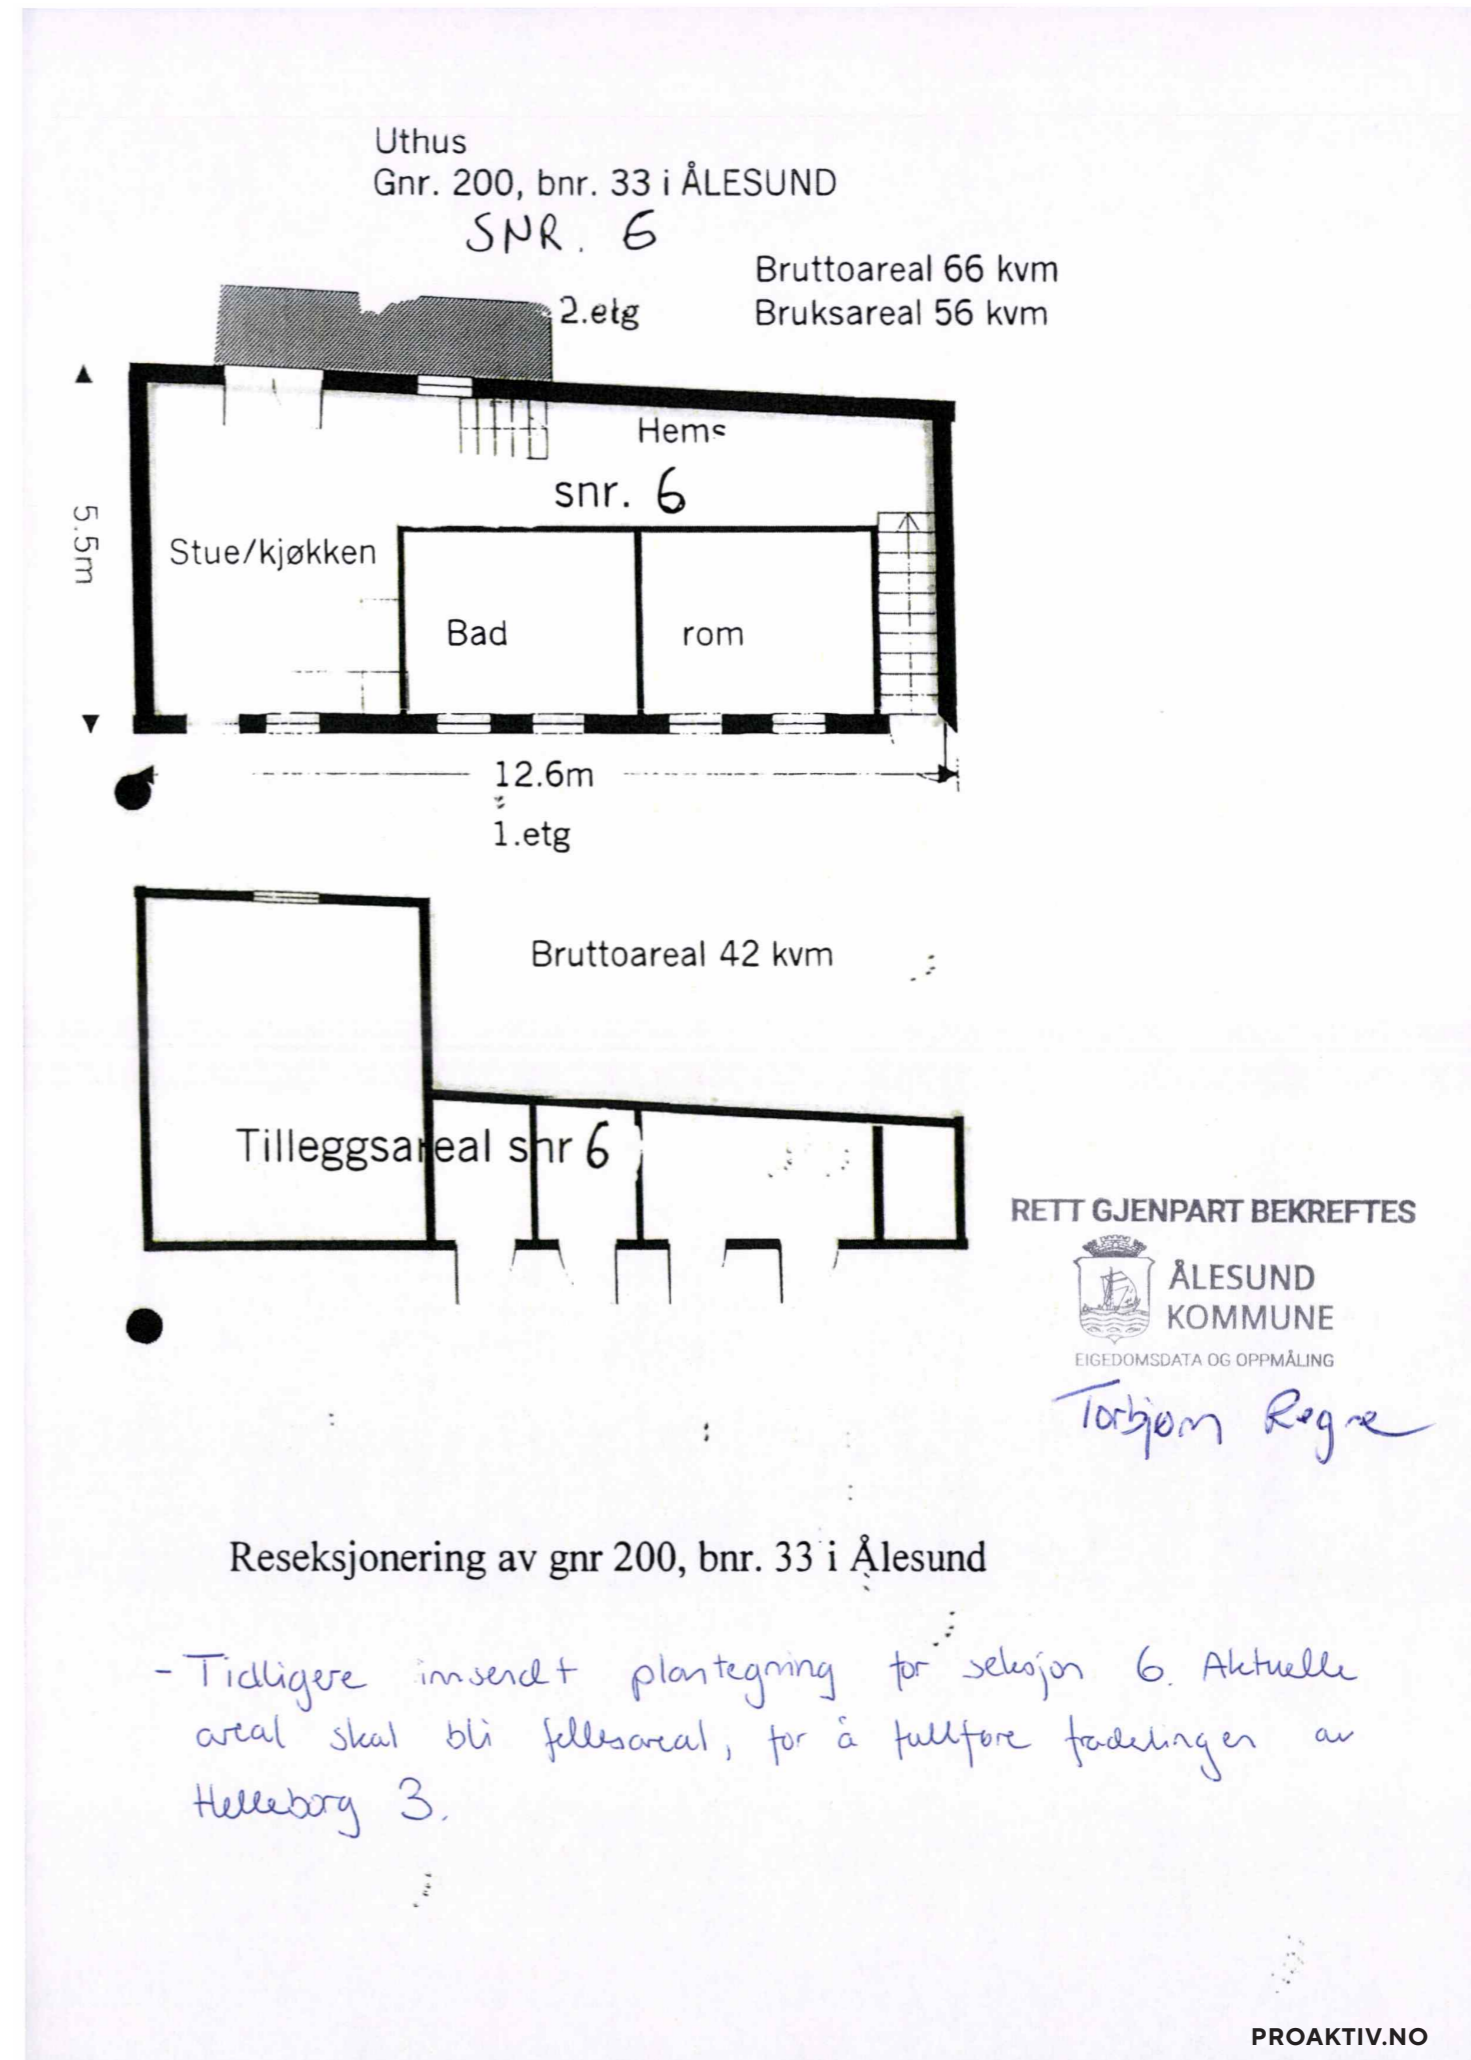 Uthus
Gnr. 200, bnr. 33 i ÅLESUND
SNR. 6
Bruttoareal 66 kvm
2.etg
Bruksareal 56 kvm
Hems
snr. 6
5.5m
Stue/kjøkken
Bad
rom
12.6m
1.etg
Bruttoareal 42 kvm
Tilleggsareal snr 6
RETT GJENPART BEKREFTES
ÅLESUND
KOMMUNE
EIGEDOMSDATA OG OPPMÅLING
Torbjørn Regne
Reseksjonering av gnr 200, bnr. 33 i Ålesund
- Tidligere innsendt plantegning for seksjon 6. Aktuelle
areal skal bli fellesareal, for å fullføre fradelingen av
Helleborg 3.
PROAKTIV.NO